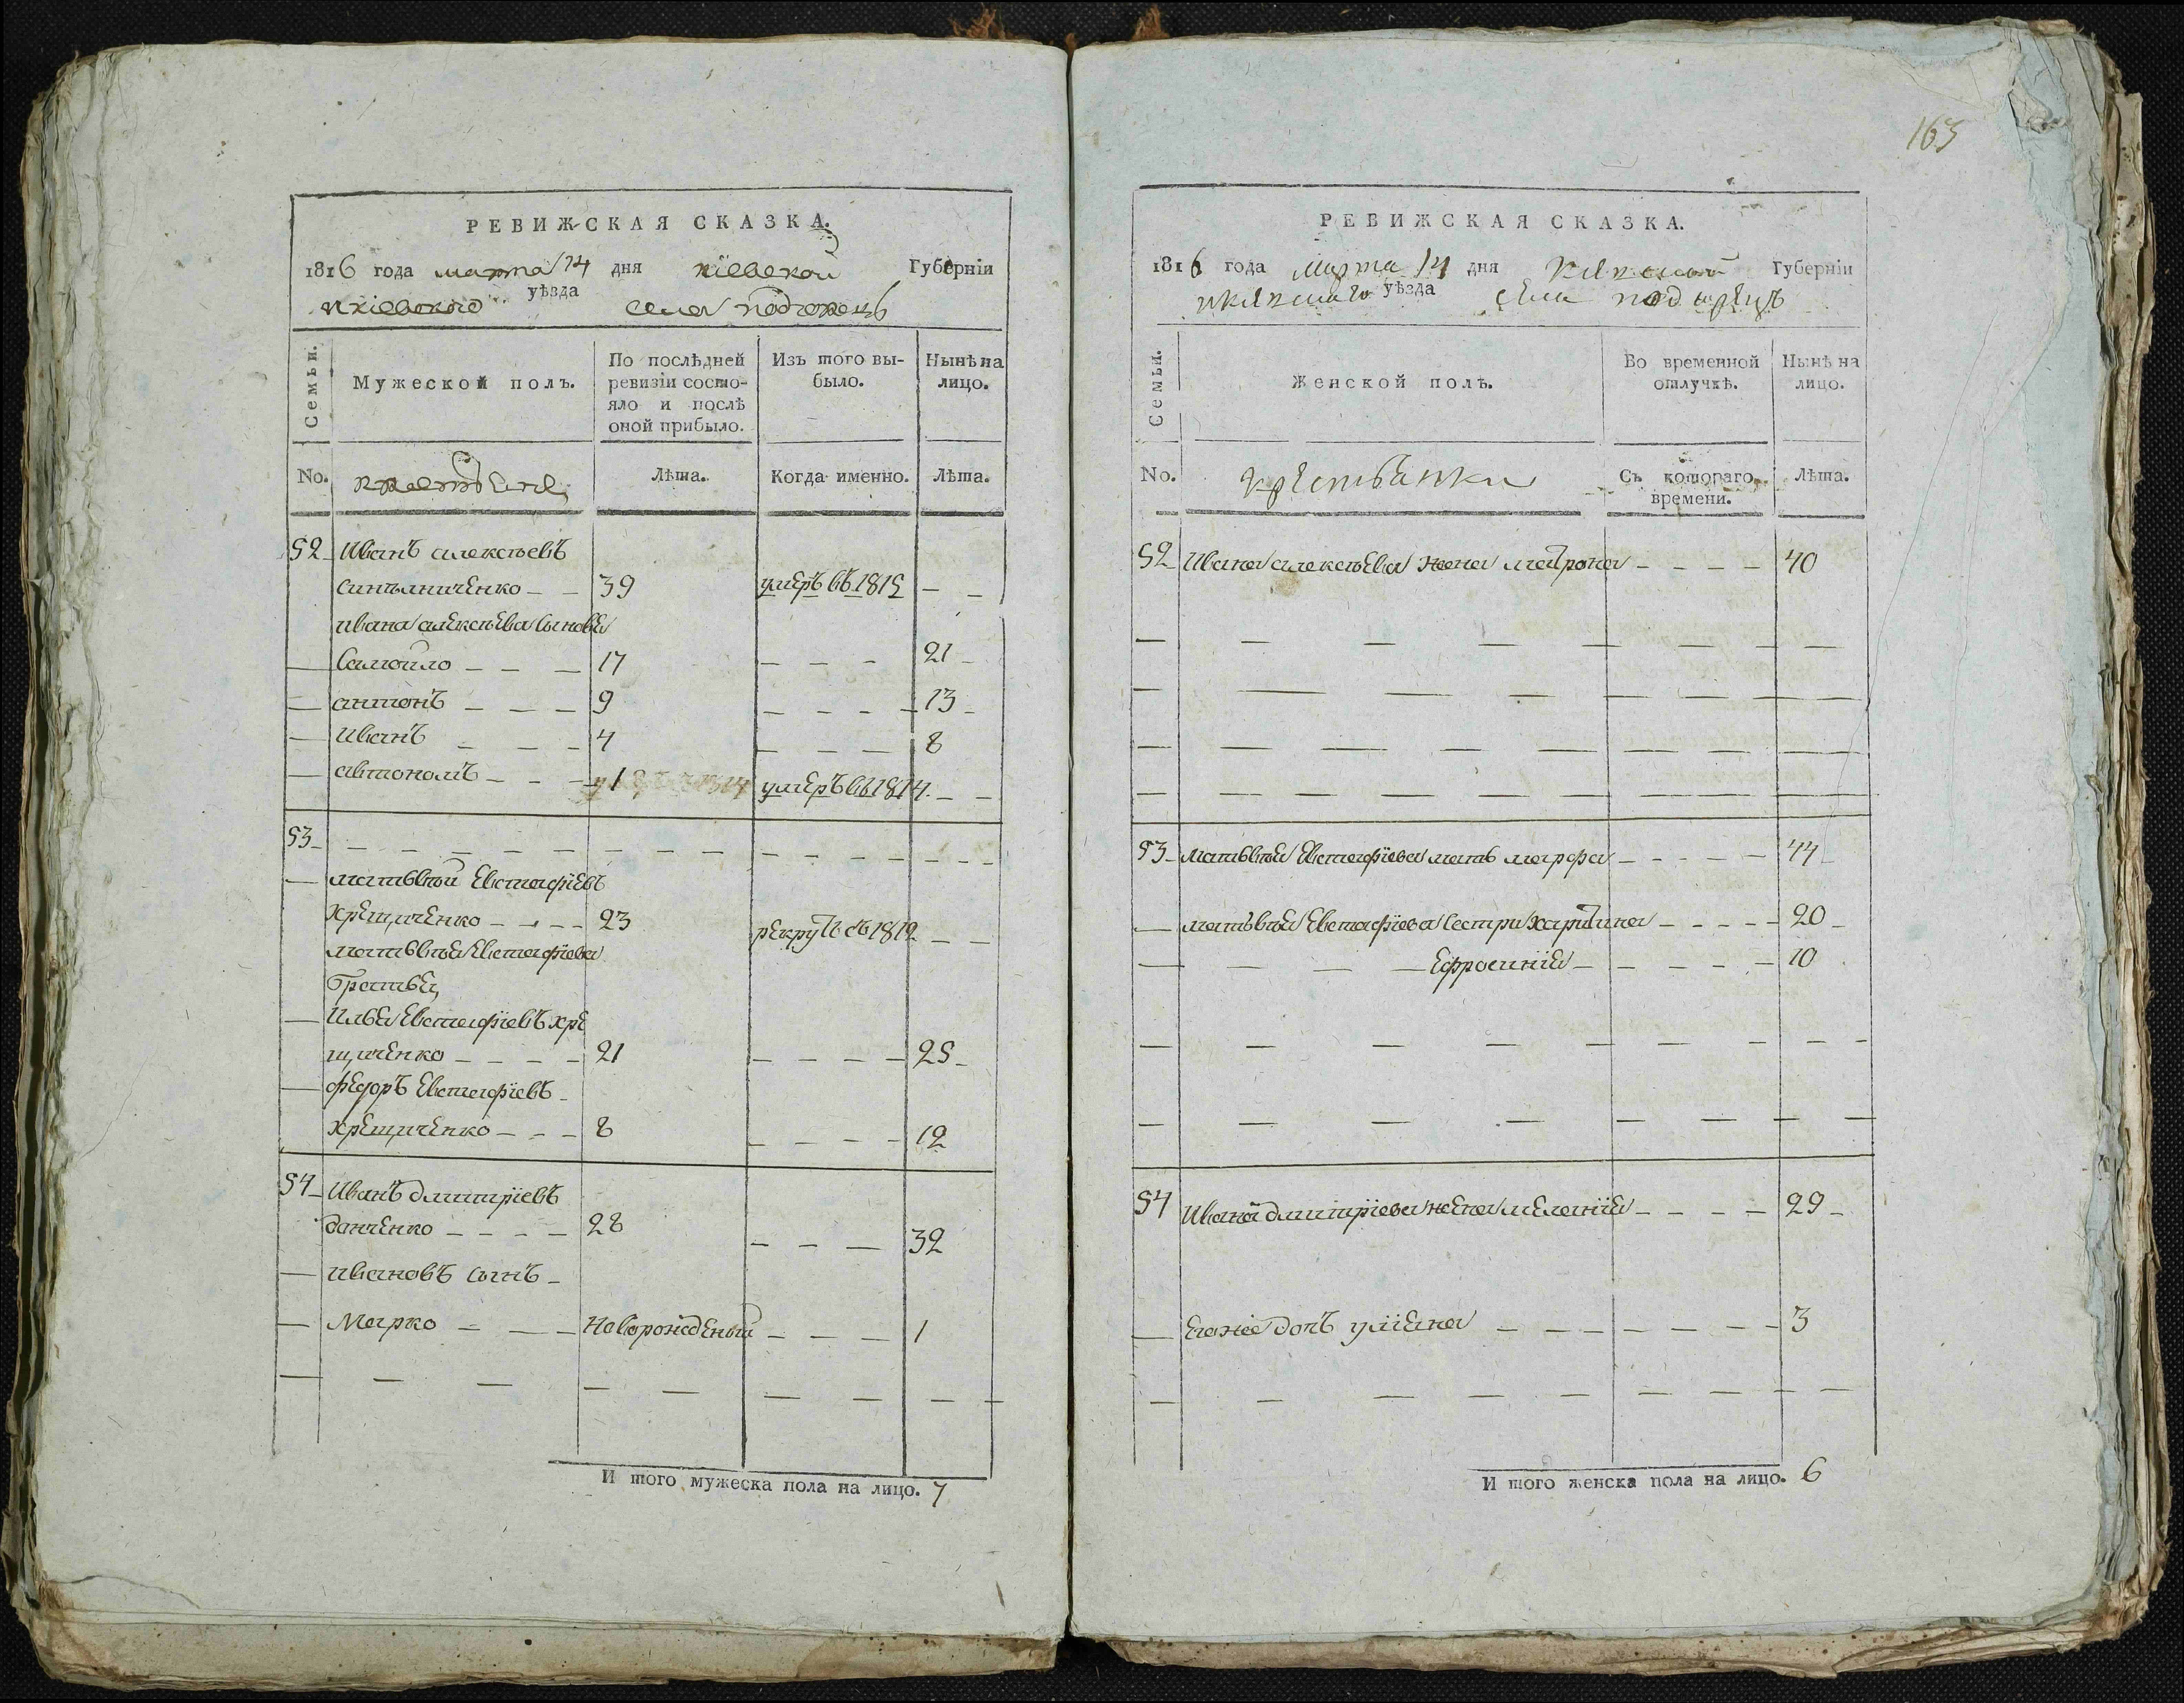 РЕВИЖСКАЯ СКАЗКА.
1816 года марта 14 дня кіевской Губерніи
икіевского уѣзда села подгорець
Семьи.
Мужеской полъ.
По послѣдней ревизіи состояло и послѣ оной прибыло.
Изъ того выбыло.
Нынѣ на лицо.
No.
Лѣта.
Когда именно.
Лѣта.
52 Иванъ алексѣевъ
39 умеръ въ 1815
ивана алексѣева сыновья
Самойло 17 21
антонъ 9 13
Иванъ 4 8
автономъ 1 умеръ въ 1814
53
матьвѣй Евстафіевъ
хрещченко 23 рекрутъ съ 1812
матьвѣя Евстафіева
братья
Илья Евстафіевъ хре
щченко 21 25
федоръ Евстафіевъ
хрещченко 8 12
54 Иванъ дмитріевъ
данченко 28 32
ивановъ сынъ
Марко Новорожденый 1
И того мужеска пола на лицо. 7
163
РЕВИЖСКАЯ СКАЗКА.
1816 года марта 14 дня Губерніи
уѣзда села
Семьи.
Женской полъ.
Во временной отлучкѣ.
Нынѣ на лицо.
No.
крестьянки
Съ котораго времени.
Лѣта.
52 Ивана алексѣева жена матрона 40
53 матьвѣя Евстафіева мать марфа 44
матьвѣя Евстафіева сестры харитина 20
Ефросинія 10
54 Ивана дмитріева жена меланія 29
Егоже дочь уліяна 3
И того женска пола на лицо. 6